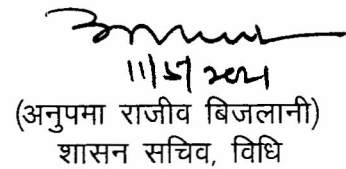 11/5/2021
(अनुपमा राजीव बिजलानी)
शासन सचिव, विधि